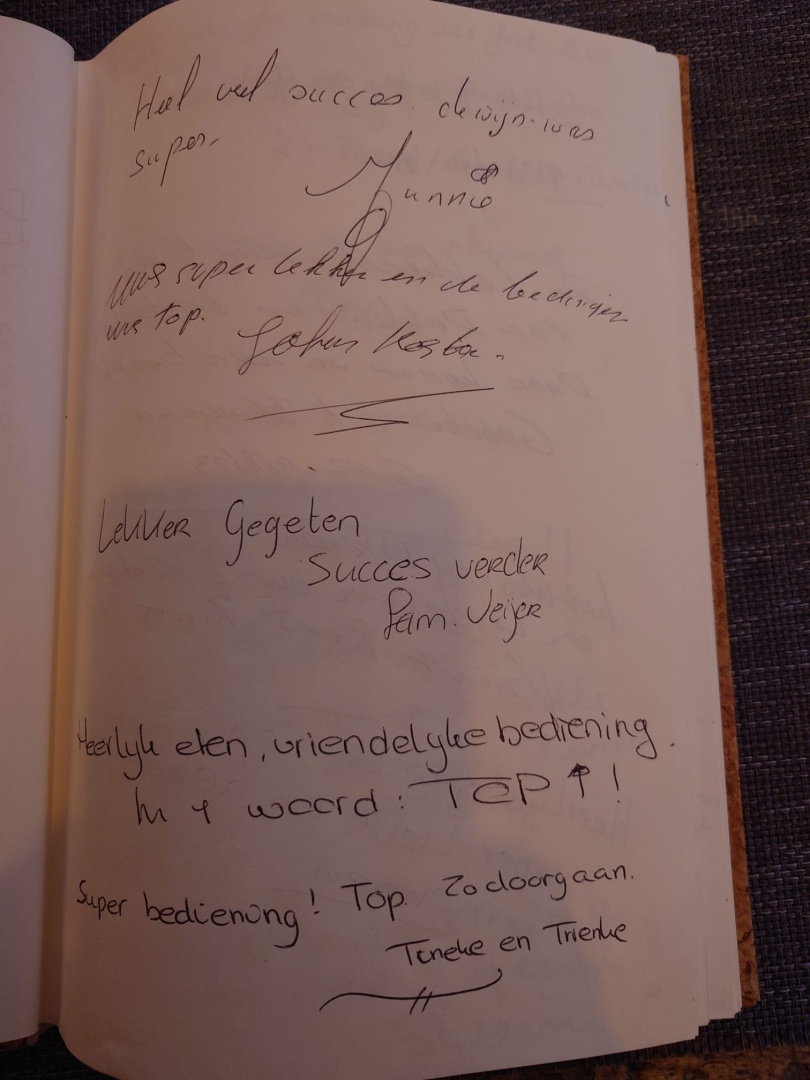 Heel veel succes. de wijn was
super.
Annie
was super lekker en de bediening
was top.
Johan
Lekker Gegeten
Succes verder
Fam. Veijer
Heerlijk eten, vriendelijke bediening.
In 1 woord: TOP↑!
Super bediening! Top. Zo doorgaan.
Tineke en Trienke